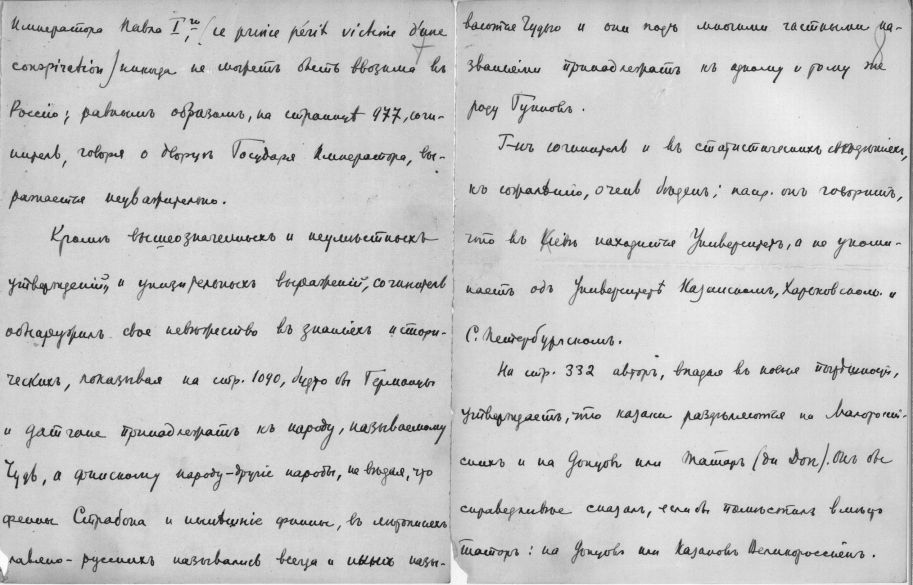 Императора Павла I-го, (ce prince périt victime d'une
conspiration) никогда не можетъ быть ввозима въ
Россію; равнымъ образомъ, на страницѣ 977, сочи-
нитель, говоря о дворцѣ Государя Императора, вы-
ражается неуважительно.
Кромѣ вышеозначенныхъ и неумѣстныхъ
утвержденій, и унизительныхъ выраженій, сочинитель
обнаружилъ свое невѣжество въ знаніяхъ истори-
ческихъ, показывая на стр. 1090, будто бы Германцы
и датчане принадлежатъ къ народу, называемому
Чудь, а финскому народу-другіе народы, не вѣдая, что
фенны Страбона и нынѣшніе финны, въ лѣтописяхъ
славяно-русскихъ назывались всегда и нынѣ назы-
ваются Чудью и они подъ многими частными на-
званіями принадлежатъ къ одному и тому же
роду Гунновъ.
Г-нъ сочинитель и въ статистическихъ свѣдѣніяхъ,
къ сожалѣнію, очень бѣденъ; напр. онъ говоритъ,
что въ Кіевѣ находится Университетъ, а не упоми-
наетъ объ Университетѣ Казанскомъ, Харьковскомъ и
С. Петербургскомъ.
На стр. 332 авторъ, впадая въ новыя погрѣшности,
утверждаетъ, что казаки раздѣляются на Малоросій-
скихъ и на Донцовъ или Татаръ (du Don). Онъ бы
справедливѣе сказалъ, если бы помѣстилъ вмѣсто
татаръ: на Донцовъ или Казаковъ Великороссіянъ.